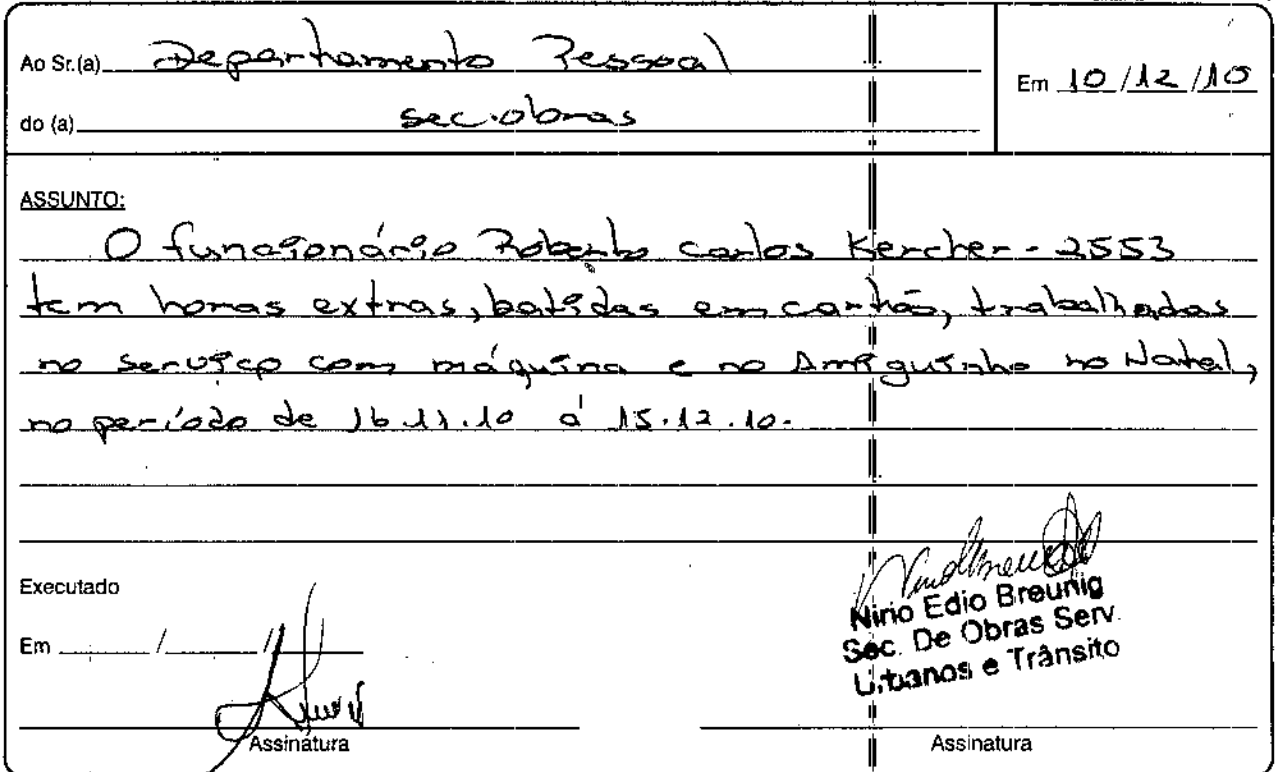 Ao Sr.(a) Departamento Pessoal
Em 10/12/10
do (a) sec.obras
ASSUNTO:
O funcionário Roberto Carlos Kercher - 2553
tem horas extras, batidas em cartão, trabalhadas
no serviço com máquina e no Amiguinho no Natal,
no período de 16.11.10 á 15.12.10.
Executado
Em / /
Nirio Edio Breunig
Sec. De Obras Serv.
Urbanos e Trânsito
Assinatura
Assinatura